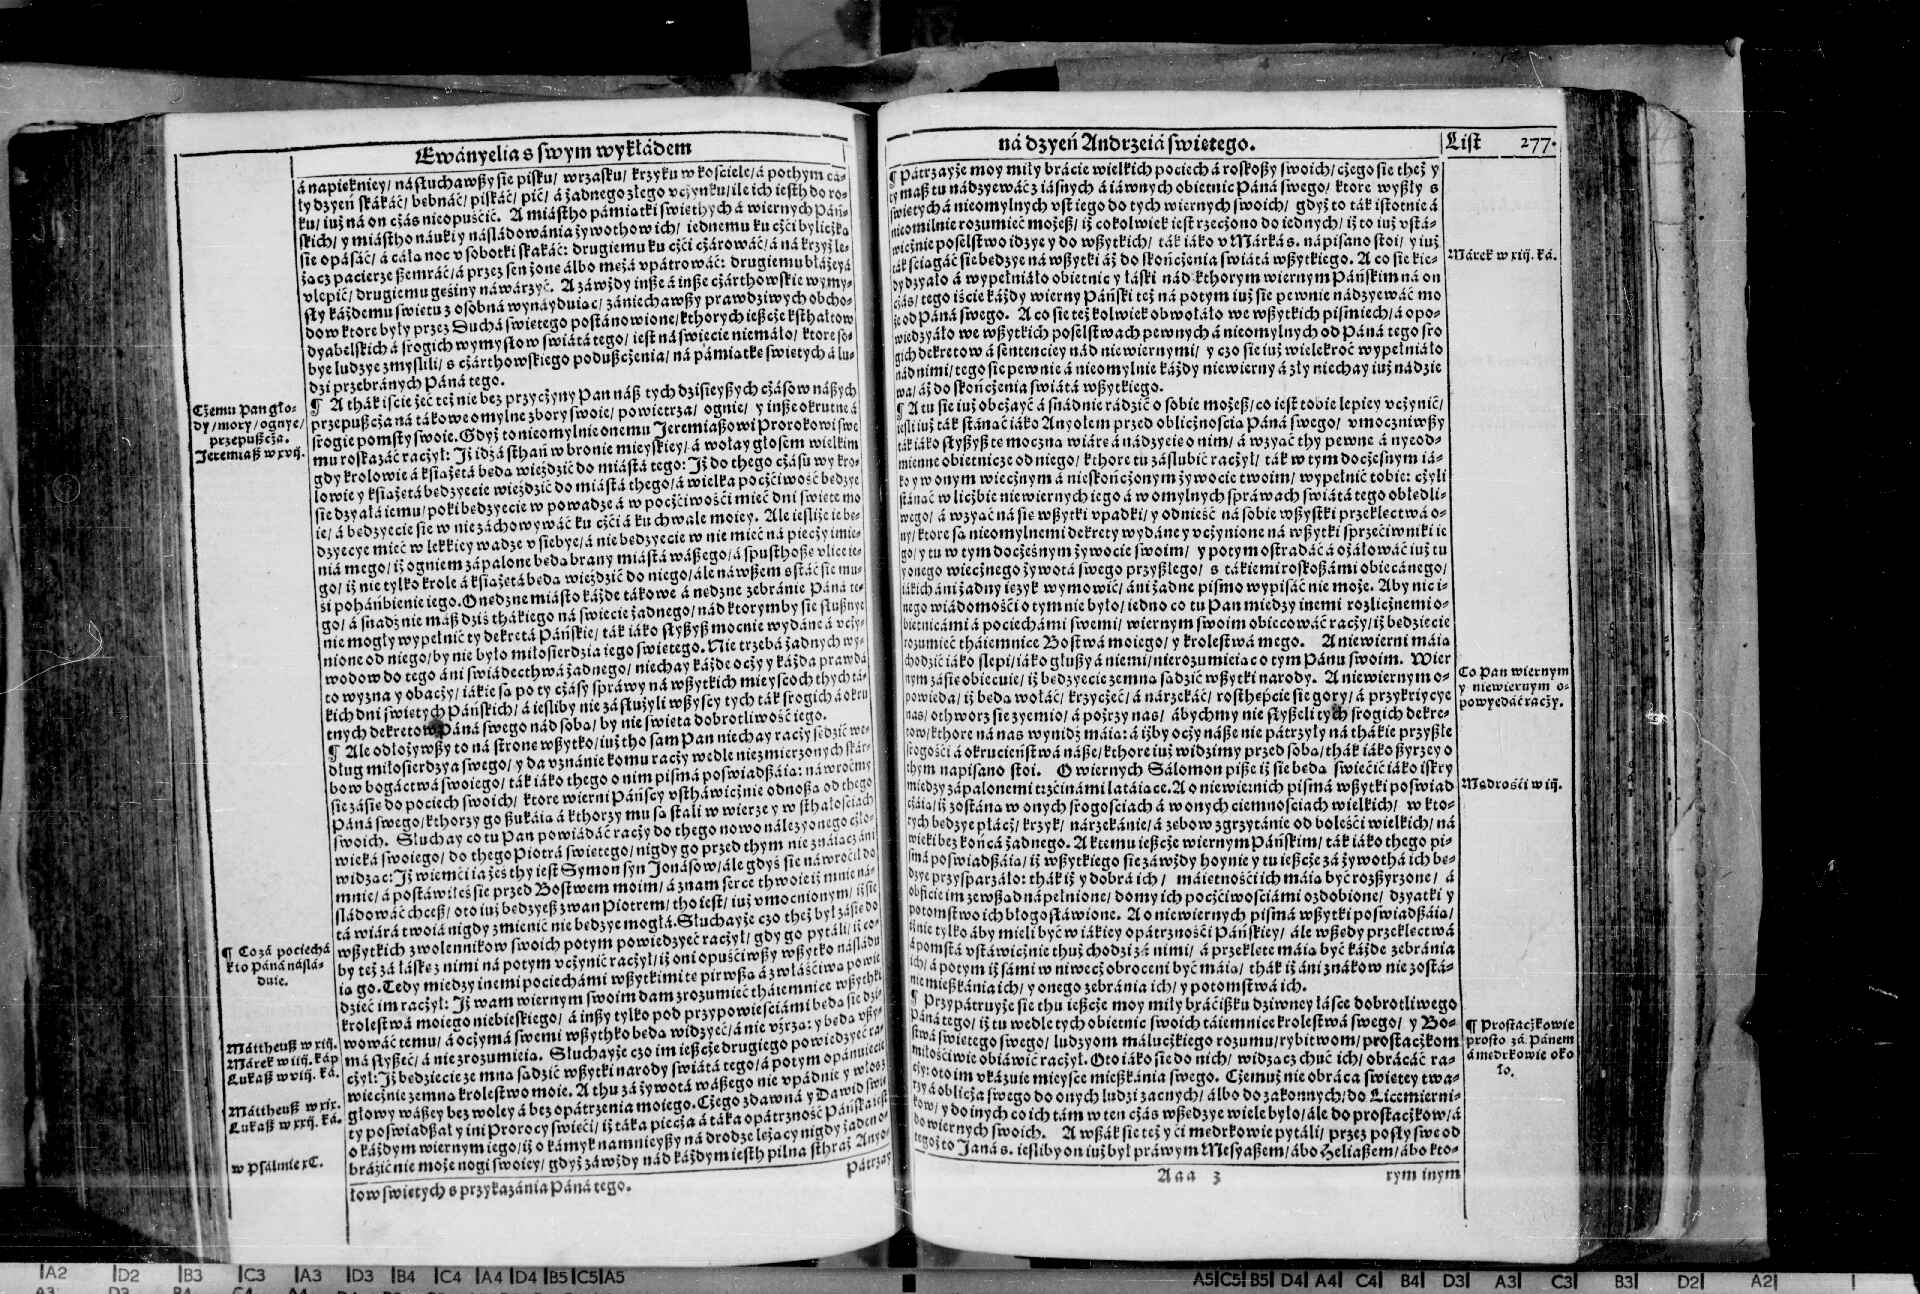 Ewányelia s swym wykłádem
á napiekniey/ násłuchawßy sie pisku/ wrzasku/ krzyku w kościele/ á pothym cá-
ły dzyeń skákáć/ bebnáć/ piskáć/ pić/ á żadnego złego vcżynku/ ile ich iesth do ro-
ku/ iuż ná on cżás nieopuśćić. A miástho pámiatki swiethych á wiernych Páń-
skich/ y miástho náuki y násládowánia żywothow ich/ iednemu ku cżći bylicżka
sie opásáć/ á cáła noc v sobotki skakáć: drugiemu ku cżći cżárowáć/ á ná krzyż le-
żacz pacierze ßemráć/ á przez sen żone álbo meżá vpátrowáć: drugiemu błáżeyá
vlepić/ drugiemu geśiny náwárzyć. A záwżdy inße á inße cżárthowskie wymy-
sły káżdemu swietu z osobná wynáyduiac/ zániechawßy prawdziwych obcho-
dow ktore były przez Duchá swietego postánowione/ kthorych ießcże kstháltow
dyabelskich á srogich wymysłow świátá tego/ iest ná swiecie niemáło/ ktore so-
bye ludzye zmyslili/ s cżárthowskiego podußcżenia/ ná pámiatke swietych á lu-
dzi przebránych Páná tego.
¶ A thák iście żeć też nie bez przycżyny Pan náß tych dzisieyßych cżásow náßych
przepußcża ná tákowe omylne zbory swoie/ powietrza/ ognie/ y inße okrutne á
srogie pomsty swoie. Gdyż to nieomylnie onemu Jeremiaßowi Prorokowi swe
mu roskazáć racżył: Jż idźá sthań w bronie mieyskiey/ á wołay głosem wielkim
gdy krolowie á ksiażetá beda wieżdzić do miástá tego: Jż do thego cżásu wy kro-
lowie y ksiażetá bedzyecie wieżdzić do miástá thego/ á wielka pocżćiwość bedzye
sie dzyałá iemu/ poki bedzyecie w powadze á w pocżćiwośći mieć dni swiete mo
ie/ á bedzyecie sie w nie záchowywáć ku cżći á ku chwale moiey. Ale iesliże ie be-
dzyecye mieć w lekkiey wadze v siebye/ á nie bedzyecie w nie mieć ná piecży imie-
niá mego/ iż ogniem zápalone beda brany miástá wáßego/ á spusthoße vlice ie-
go/ iż nie tylko krole á ksiażetá beda wieżdzić do niego/ ále náwßem sstáć sie mu-
śi poháńbienie iego. O nedzne miásto káżde tákowe á nedzne zebránie Páná te-
go/ á snadźnie máß dziś thákiego ná świecie żadnego/ nád ktorymby sie słußnye
nie mogły wypełnić ty dekretá Páńskie/ ták iáko słyßyß mocnie wydáne á vcży-
nione od niego/ by nie było miłosierdzia iego swietego. Nie trzebá żadnych wy-
wodow do tego áni swiádecthwá żadnego/ niechay káżde ocży y káżda prawdá
to wyzna y obacży/ iákie sa po ty cżásy spráwy ná wßytkich mieyscoch thych tá-
kich dni swietych Páńskich/ á iesliby nie zásłużyli wßyscy tych ták srogich á okru
tnych dekretow Páná swego nád soba/ by nie swieta dobrotliwość iego.
¶ Ale odłożywßy to ná strone wßytko/ iuż tho sam Pan niechay racży sedzić we-
dług miłosierdzya swego/ y da vznánie komu racży wedle niezmierzonych skár-
bow bogáctwá swoiego/ ták iáko thego o nim pismá poswiadßáia: náwroćmy
sie záśie do pociech swoich/ ktore wierni Páńscy vstháwicżnie odnoßa od thego
Páná swego/ kthorzy go ßukáia á kthorzy mu sa stali w wierze y w sthałościach
swoich. Słuchay co tu Pan powiádáć racży do thego nowo nálezyonego cżło-
wieká swoiego/ do thego Piotrá swietego/ nigdy go przed thym nie znáiac áni
widzac: Jż wiemci iażeś thy iest Symon syn Jonásow/ ále gdyś sie náwrocił do
mnie/ á postáwiłeś sie przed Bostwem moim/ á znam serce thwoie iż mnie ná-
sládowáć chceß/ oto iuż bedzyeß zwan Piotrem/ tho iest/ iuż vmocnionym/ iż sie
tá wiárá twoiá nigdy zmienić nie bedzye mogłá. Słuchayże czo theż był záśie do
wßytkich zwolennikow swoich potym powiedzyeć racżył/ gdy go pytáli/ iż co-
by też zá łáske z nimi ná potym vcżynić racżył/ iż oni opuśćiwßy wßytko násládu
ia go. Tedy miedzy inemi pociechámi wßytkimi te pirwßa á zwłáśćiwa powie
dzieć im racżył: Jż wam wiernym swoim dam zrozumieć tháiemnice wßythki
krolestwá moiego niebieskiego/ á inßy tylko pod przypowieściámi beda sie dzi-
wowáć temu/ á ocżymá swemi wßythko beda widzyeć/ á nie vźrza: y beda vßy-
má słyßeć/ á nie zrozumieia. Słuchayże czo im ießcże drugiego powiedzyeć ra-
cżył: Jż bedziecie ze mna sadzić wßytki narody swiátá tego/ á potym opánuiecie
wiecżnie zemna krolestwo moie. A thu zá żywotá wáßego nie vpádnie y włosz
głowy wáßey bez woley á bez opátrzenia moiego. Cżego zdawná y Dawid swie
ty poświadßał y ini Prorocy świeći/ iż táka piecża á táka opátrzność Páńska iest
o káżdym wiernym iego/ iż o kámyk namnieyßy ná drodze leżacy nigdy żaden o-
bráźić nie może nogi swoiey/ gdyż záwżdy nád káżdym iesth pilna sthraż Anyo-
łow swietych s przykazánia Páná tego.
Pátrzay
Cżemu Pan gło-
dy/ mory/ ognye/
przepußcża.
Jeremiaß w xvij.
¶ Co zá pociechá
kto Páná náslá-
duie.
Máttheuß w xiij.
Márek w iiij. káp
Lukaß w viij. ká.
Máttheuß w xix.
Lukaß w xxij. ká.
w Psalmie xC.
ná dzyeń Andrzeiá swietego.
List 277.
¶ Pátrzayże moy miły brácie wielkich pociech á roskoßy swoich/ cżego sie theż y
ty maß tu nádzyewáć z iásnych á iáwnych obietnic Páná swego/ ktore wyßły s
swietych á nieomylnych vst iego do tych wiernych swoich/ gdyż to ták istotnie á
nieomilnie rozumieć możeß/ iż cokolwiek iest rzecżono do iednych/ iż to iuż vstá-
wicżnie poselstwo idzye y do wßytkich/ ták iáko v Márká s. nápisano stoi/ y iuż
ták sciagáć sie bedzye ná wßytki áż do skońcżenia świátá wßytkiego. A co sie kie-
dy dzyało á wypełniáło obietnic y łáski nád kthorym wiernym Páńskim ná on
cżás/ tego iście káżdy wierny Páński też ná potym iuż sie pewnie nádzyewáć mo
że od Páná swego. A co sie też kolwiek obwołáło we wßytkich pismiech/ á opo-
wiedzyáło we wßytkich poselstwach pewnych á nieomylnych od Páná tego sro
gich dekretow á sentenciey nád niewiernymi/ y czo sie iuż wielekroć wypełniáło
nád nimi/ tego sie pewnie á nieomylnie káżdy niewierny á zły niechay iuż nádzie
wa/ áż do skońcżenia świátá wßytkiego.
¶ A tu sie iuż obcżayć á snádnie rádzić o sobie możeß/ co iest tobie lepiey vcżynić/
iesli iuż ták stánać iáko Anyołem przed oblicżnościa Páná swego/ vmocniwßy
ták iáko słyßyß te moczna wiáre á nádzyeie o nim/ á wzyać thy pewne á nyeod-
mienne obietnicze od niego/ kthore tu záslubić racżył/ ták w tym docżesnym iá-
ko y w onym wiecżnym á nieskońcżonym żywocie twoim/ wypełnić tobie: cżyli
stánać w licżbie niewiernych iego á w omylnych spráwach swiátá tego obłedli-
wego/ á wzyać ná sie wßytki vpadki/ y odnieść ná sobie wßystki przeklectwá o-
ny/ ktore sa nieomylnemi dekrety wydáne y vcżynione ná wßytki sprzeciwniki ie
go/ y tu w tym docżeśnym żywocie swoim/ y potym ostrádáć á ożáłowáć iuż tu
yonego wiecżnego żywotá swego przyßłego/ s tákiemi roskoßámi obiecánego/
iákich áni żadny iezyk wymowić/ áni żadne pismo wypisáć nie może. Aby nic i-
nego wiádomośći o tym nie było/ iedno co tu Pan miedzy inemi rozlicżnemi o-
bietnicámi á pociechámi swemi/ wiernym swoim obiecowáć racży/ iż bedziecie
rozumieć tháiemnice Bostwá moiego/ y krolestwá mego. A niewierni máia
chodzić iáko slepi/ iáko głußy á niemi/ nierozumieiac o tym Pánu swoim. Wier
nym záśie obiecuie/ iż bedzyecie zemna sadzić wßytki narody. A niewiernym o-
powieda/ iż beda wołáć/ krzycżeć/ á nárzekáć/ rosthepcie sie gory/ á przykriycye
nas/ othworz sie zyemio/ á pożrzy nas/ ábychmy nie słyßeli tych srogich dekre-
tow/ kthore ná nas wynidż máia: á iżby ocży náße nie pátrzyły ná thákie przyßłe
srogości á okrucieństwá náße/ kthore iuż widzimy przed soba/ thák iáko ßyrzey o
thym napisano stoi. O wiernych Sálomon piße iż sie beda swiećić iáko iskry
miedzy zápalonemi trzćinámi latáiace. A o niewiernich pismá wßytki poswiad
cżáia/ iż zostána w onych srogosciach á w onych ciemnosciach wielkich/ w kto-
rych bedzye płácż/ krzyk/ nárzekánie/ á zebow zgrzytánie od boleści wielkich/ ná
wieki bez końcá żadnego. A ktemu ießcże wiernym Páńskim/ ták iáko thego pi-
smá poswiadßáia/ iż wßytkiego sie záwżdy hoynie y tu ießcże zá żywothá ich be-
dzye przysparzáło: thák iż y dobrá ich/ máietnośći ich máia być rozßyrzone/ á
obficie im zewßad nápełnione/ domy ich pocżciwościámi ozdobione/ dzyatki y
potomstwo ich błogosławione. A o niewiernych pismá wßytki poswiadßáia/
iżnie tylko áby mieli być w iákiey opátrznośći Páńskiey/ ále wßedy przeklectwá
á pomstá vstáwicżnie thuż chodzi zá nimi/ á przeklete máia być káżde zebránia
ich/ á potym iż sámi w niwecż obroceni być máia/ thák iż áni znákow nie zostá-
nie mießkánia ich/ y onego zebránia ich/ y potomstwá ich.
¶ Przypátruyże sie thu ießcże moy miły bráćißku dziwney łásce dobrotliwego
Páná tego/ iż tu wedle tych obietnic swoich táiemnice krolestwá swego/ y Bo-
stwá swietego swego/ ludzyom málucżkiego rozumu/ rybitwom/ prostacżkom
miłościwie obiáwić racżył. Oto iáko sie do nich/ widzacz chuć ich/ obrácáć ra-
cży: oto im vkázuie mieysce mießkánia swego. Cżemuż nie obráca swietey twa-
rzy á oblicża swego do onych ludzi zacnych/ álbo do zakonnych/ do Licemierni-
kow/ y do inych co ich tám w ten cżás wßedzye wiele było/ ále do prostacżkow/ á
do wiernych swoich. A wßák sie też y ci medrkowie pytáli/ przez posły swe od
tegoż to Janá s. iesliby on iuż był práwym Mesyaßem/ ábo Heliaßem/ ábo kto-
Aaa 3
rym inym
Márek w xiij. ká.
Co Pan wiernym
y niewiernym o-
powyedáć racży.
Mądrości w iij.
¶ Prostacżkowie
prosto zá Pánem
á medrkowie oko
ło.
A2 D2 B3 C3 A3 D3 B4 C4 A4 D4 B5 C5 A5
A5 C5 B5 D4 A4 C4 B4 D3 A3 C3 B3 D2 A2